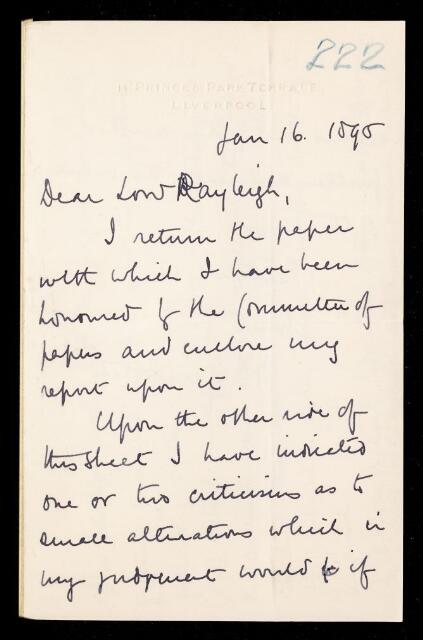 222
11 PRINCES PARK TERRACE
LIVERPOOL
Jan 16. 1895
Dear Lord Rayleigh,
I return the paper
with which I have been
honoured by the Committee of
papers and enclose my
report upon it.
Upon the other side of
this sheet I have indicated
one or two criticisms as to
small alterations which in
my judgment would if